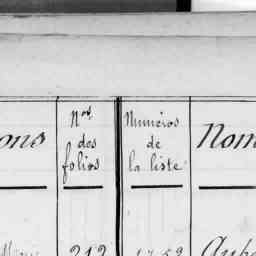 ons
Nos
des
folios
Numéros
de
la liste
Nom
212
1752